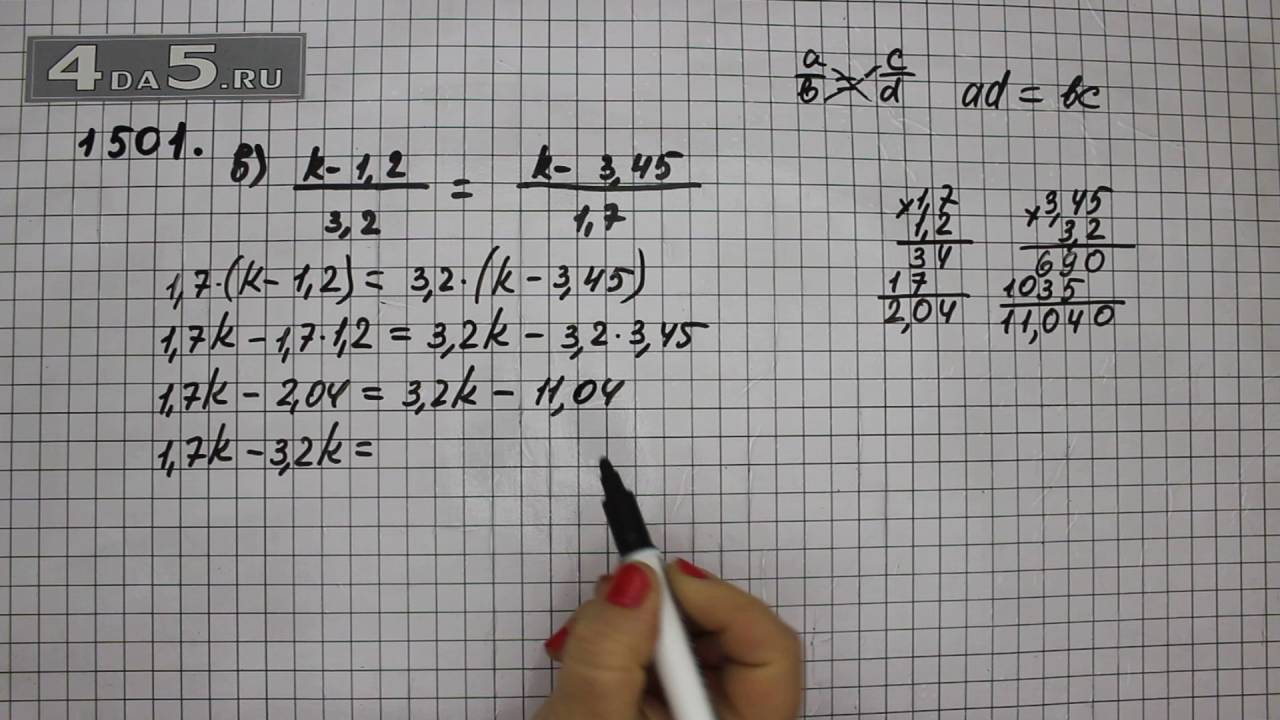 4DA5.RU
1501. в) k - 1,2 / 3,2 = k - 3,45 / 1,7
1,7·(k - 1,2) = 3,2·(k - 3,45)
1,7k - 1,7·1,2 = 3,2k - 3,2·3,45
1,7k - 2,04 = 3,2k - 11,04
1,7k - 3,2k =
a/b c/d ad = bc
×1,7
1,2
34
17
2,04
×3,45
3,2
690
1035
11,040